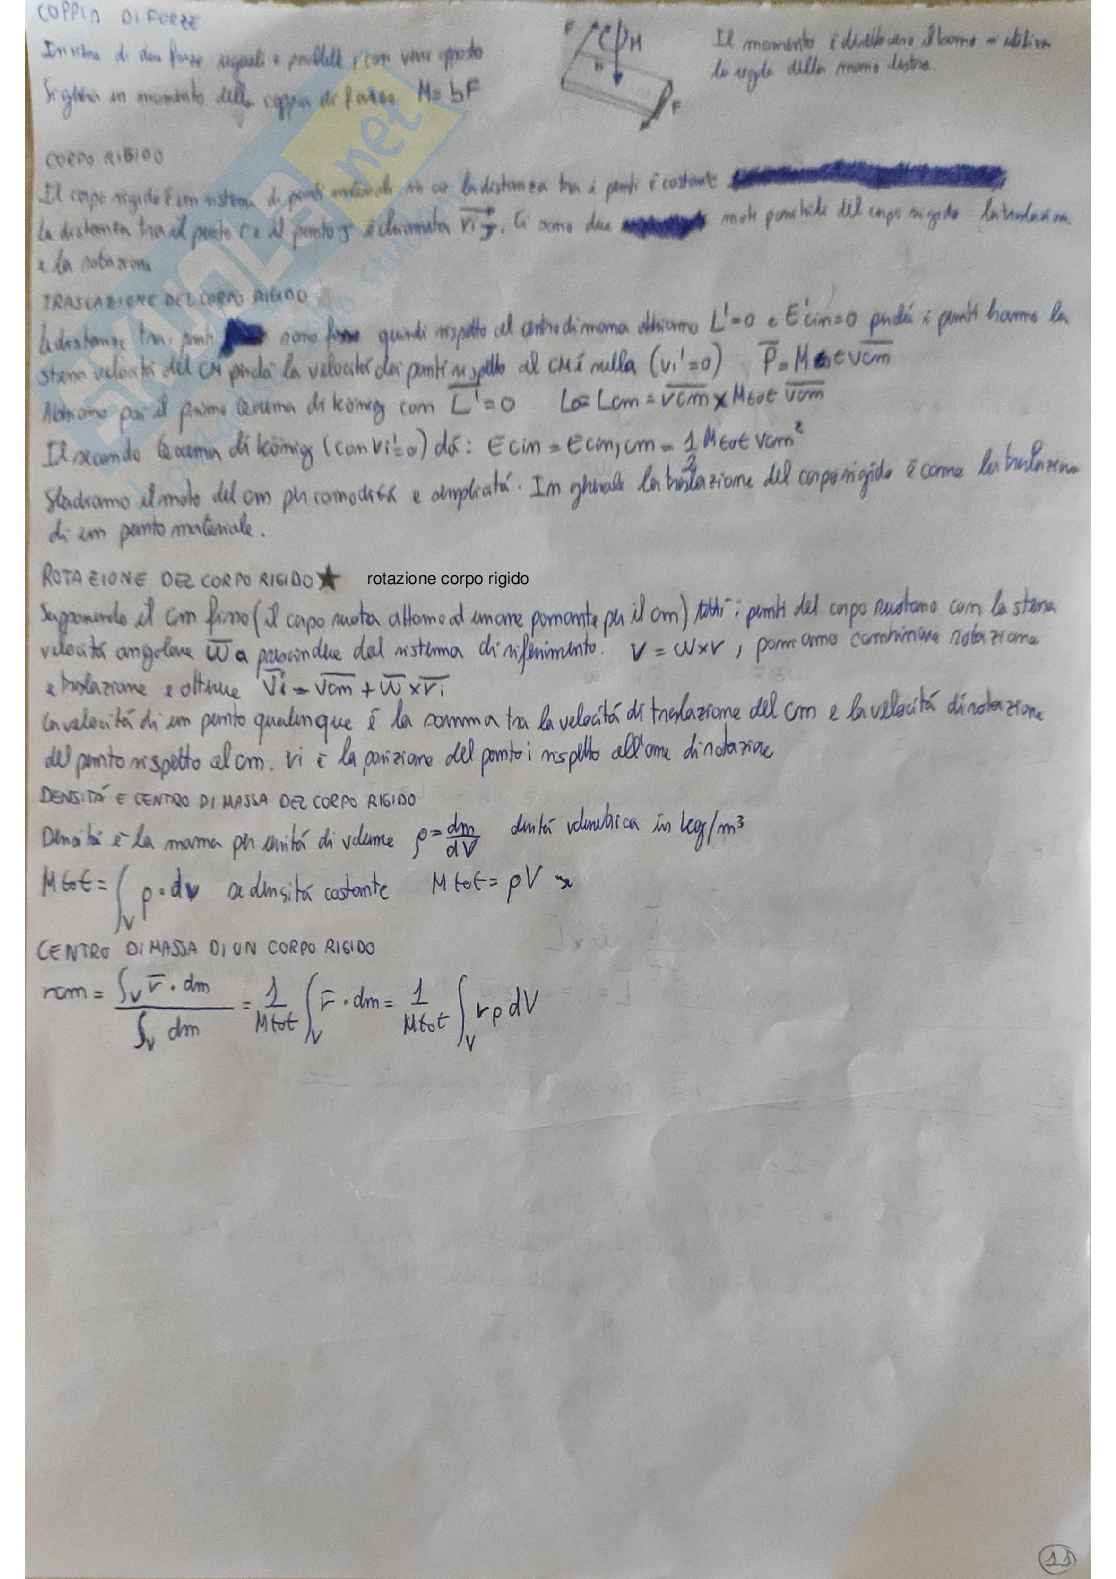 COPPIA DI FORZE
Insieme di due forze uguali e parallele, con verso opposto
Si genera un momento della coppia di forze M= bF
F M b F
Il momento è diretto verso il basso si utilizza
la regola della mano destra.
CORPO RIGIDO
Il corpo rigido è un sistema di punti materiali in cui la distanza tra i punti è costante
La distanza tra il punto i e il punto j è chiamata rij. Ci sono due moti possibili del corpo rigido la traslazione
e la rotazione
TRASLAZIONE DEL CORPO RIGIDO
Le distanze tra i punti sono fisse quindi rispetto al centro di massa abbiamo L'=0 e E'cin=0 poiché i punti hanno la
stessa velocità del CM poiché la velocità dei punti rispetto al CM è nulla (vi'=0) P= Mtot vcm
Abbiamo poi il primo teorema di König con L'=0 Lo= Lcm =
Il secondo teorema di König (con vi'=0) dà: Ecin = Ecin,cm = 1/2 Mtot vcm²
Studiamo il moto del cm per comodità e semplicità. In generale la traslazione del corpo rigido è come la traslazione
di un punto materiale.
ROTAZIONE DEL CORPO RIGIDO ★ rotazione corpo rigido
Supponendo il cm fisso (il corpo ruota attorno ad un asse passante per il cm) tutti i punti del corpo ruotano con la stessa
velocità angolare ω a prescindere dal sistema di riferimento. v = ω×r, possiamo combinare rotazione
e traslazione e ottenere vi = vcm + ω × ri
La velocità di un punto qualunque è la somma tra la velocità di traslazione del cm e la velocità di rotazione
del punto rispetto al cm. ri è la posizione del punto i rispetto all'asse di rotazione
DENSITÁ E CENTRO DI MASSA DEL CORPO RIGIDO
Densità è la massa per unità di volume ρ = dm/dV densità volumetrica in kg/m³
Mtot = ∫V ρ·dv se densità costante Mtot = ρV
CENTRO DI MASSA DI UN CORPO RIGIDO
rcm = ∫V r·dm / ∫V dm = 1/Mtot ∫V r·dm = 1/Mtot ∫V rρdV
11